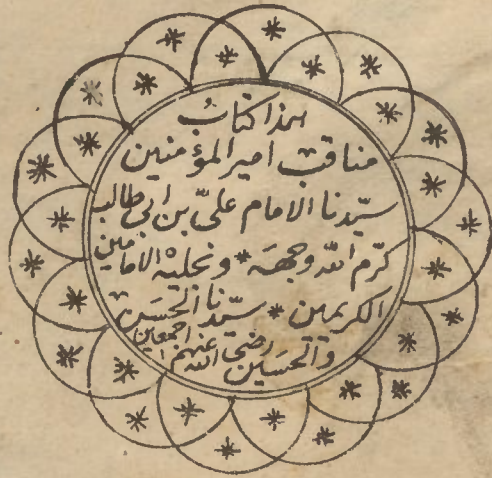 هذا كتاب
مناقب امير المؤمنين
سيّدنا الامام علىّ بن ابى طالب
كرّم الله وجهه * ونجليه الامامين
الكريمين * سيّدنا الحسن
والحسين رضى الله عنهم اجمعين